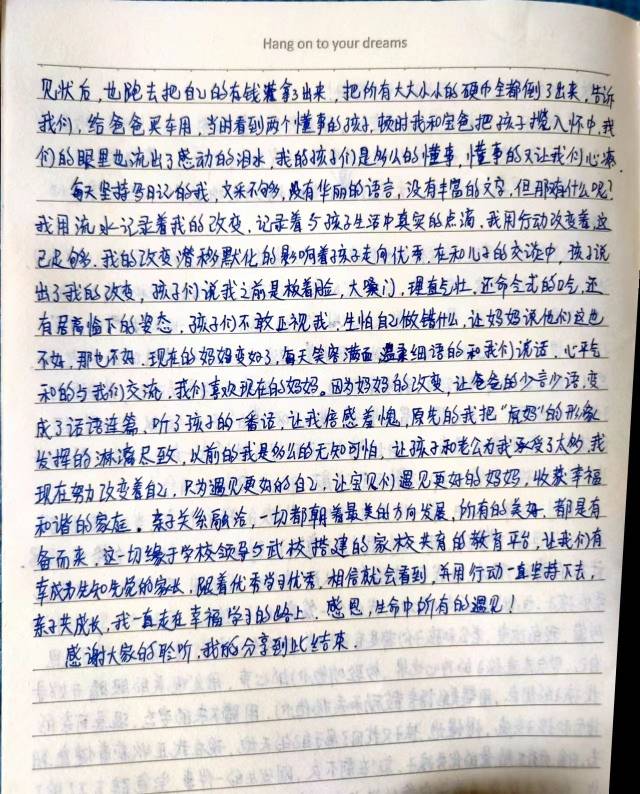 Hang on to your dreams
见状后，也跑去把自己的存钱灌拿了出来，把所有大大小小的硬币全都倒了出来，告诉
我们，给爸爸买车用，当时看到两个懂事的孩子，顿时我和宝爸把孩子揽入怀中，我
们的眼里也流出了感动的泪水，我的孩子们是多么的懂事，懂事的又让我们心凑
每天坚持写日记的我，文采不够，没有华丽的语言，没有丰富的文字，但那有什么呢？
我用流水记录着我的改变，记录着与孩子生活中真实的点滴，我用行动改变着，这
已足够，我的改变潜移默化的影响着孩子走向优秀，在和儿子的交谈中，孩子说
出了我的改变，孩子们说我之前是板着脸，大嗓门，理直气壮，还命令式的口气，还
有居高临下的姿态，孩子们不敢正视我，生怕自己做错什么，让妈妈说他们这也
不好，那也不好，现在的妈妈变好了，每天笑容满面，温柔细语的和我们说话，心平气
和的与我们交流，我们喜欢现在的妈妈。因为妈妈的改变，让爸爸的少言少语，变
成了话语连篇，听了孩子的一番话，让我倍感羞愧，原先的我把“虎妈”的形象
发挥的淋漓尽致，以前的我是多么的无知可怕，让孩子和老公为我承受了太多，我
现在努力改变着自己，只为遇见更好的自己，让宝贝们遇见更好的妈妈，收获幸福
和谐的家庭。亲子关系融洽，一切都朝着最美的方向发展，所有的美好，都是有
备而来，这一切缘于学校领导与武校搭建的家校共育的教育平台，让我们有
幸成为先知先觉的家长，跟着优秀学习优秀，相信就会看到，并用行动一直坚持下去，
亲子共成长，我一直走在幸福学习的路上，感恩，生命中所有的遇见！
感谢大家的聆听，我的分享到此结束．